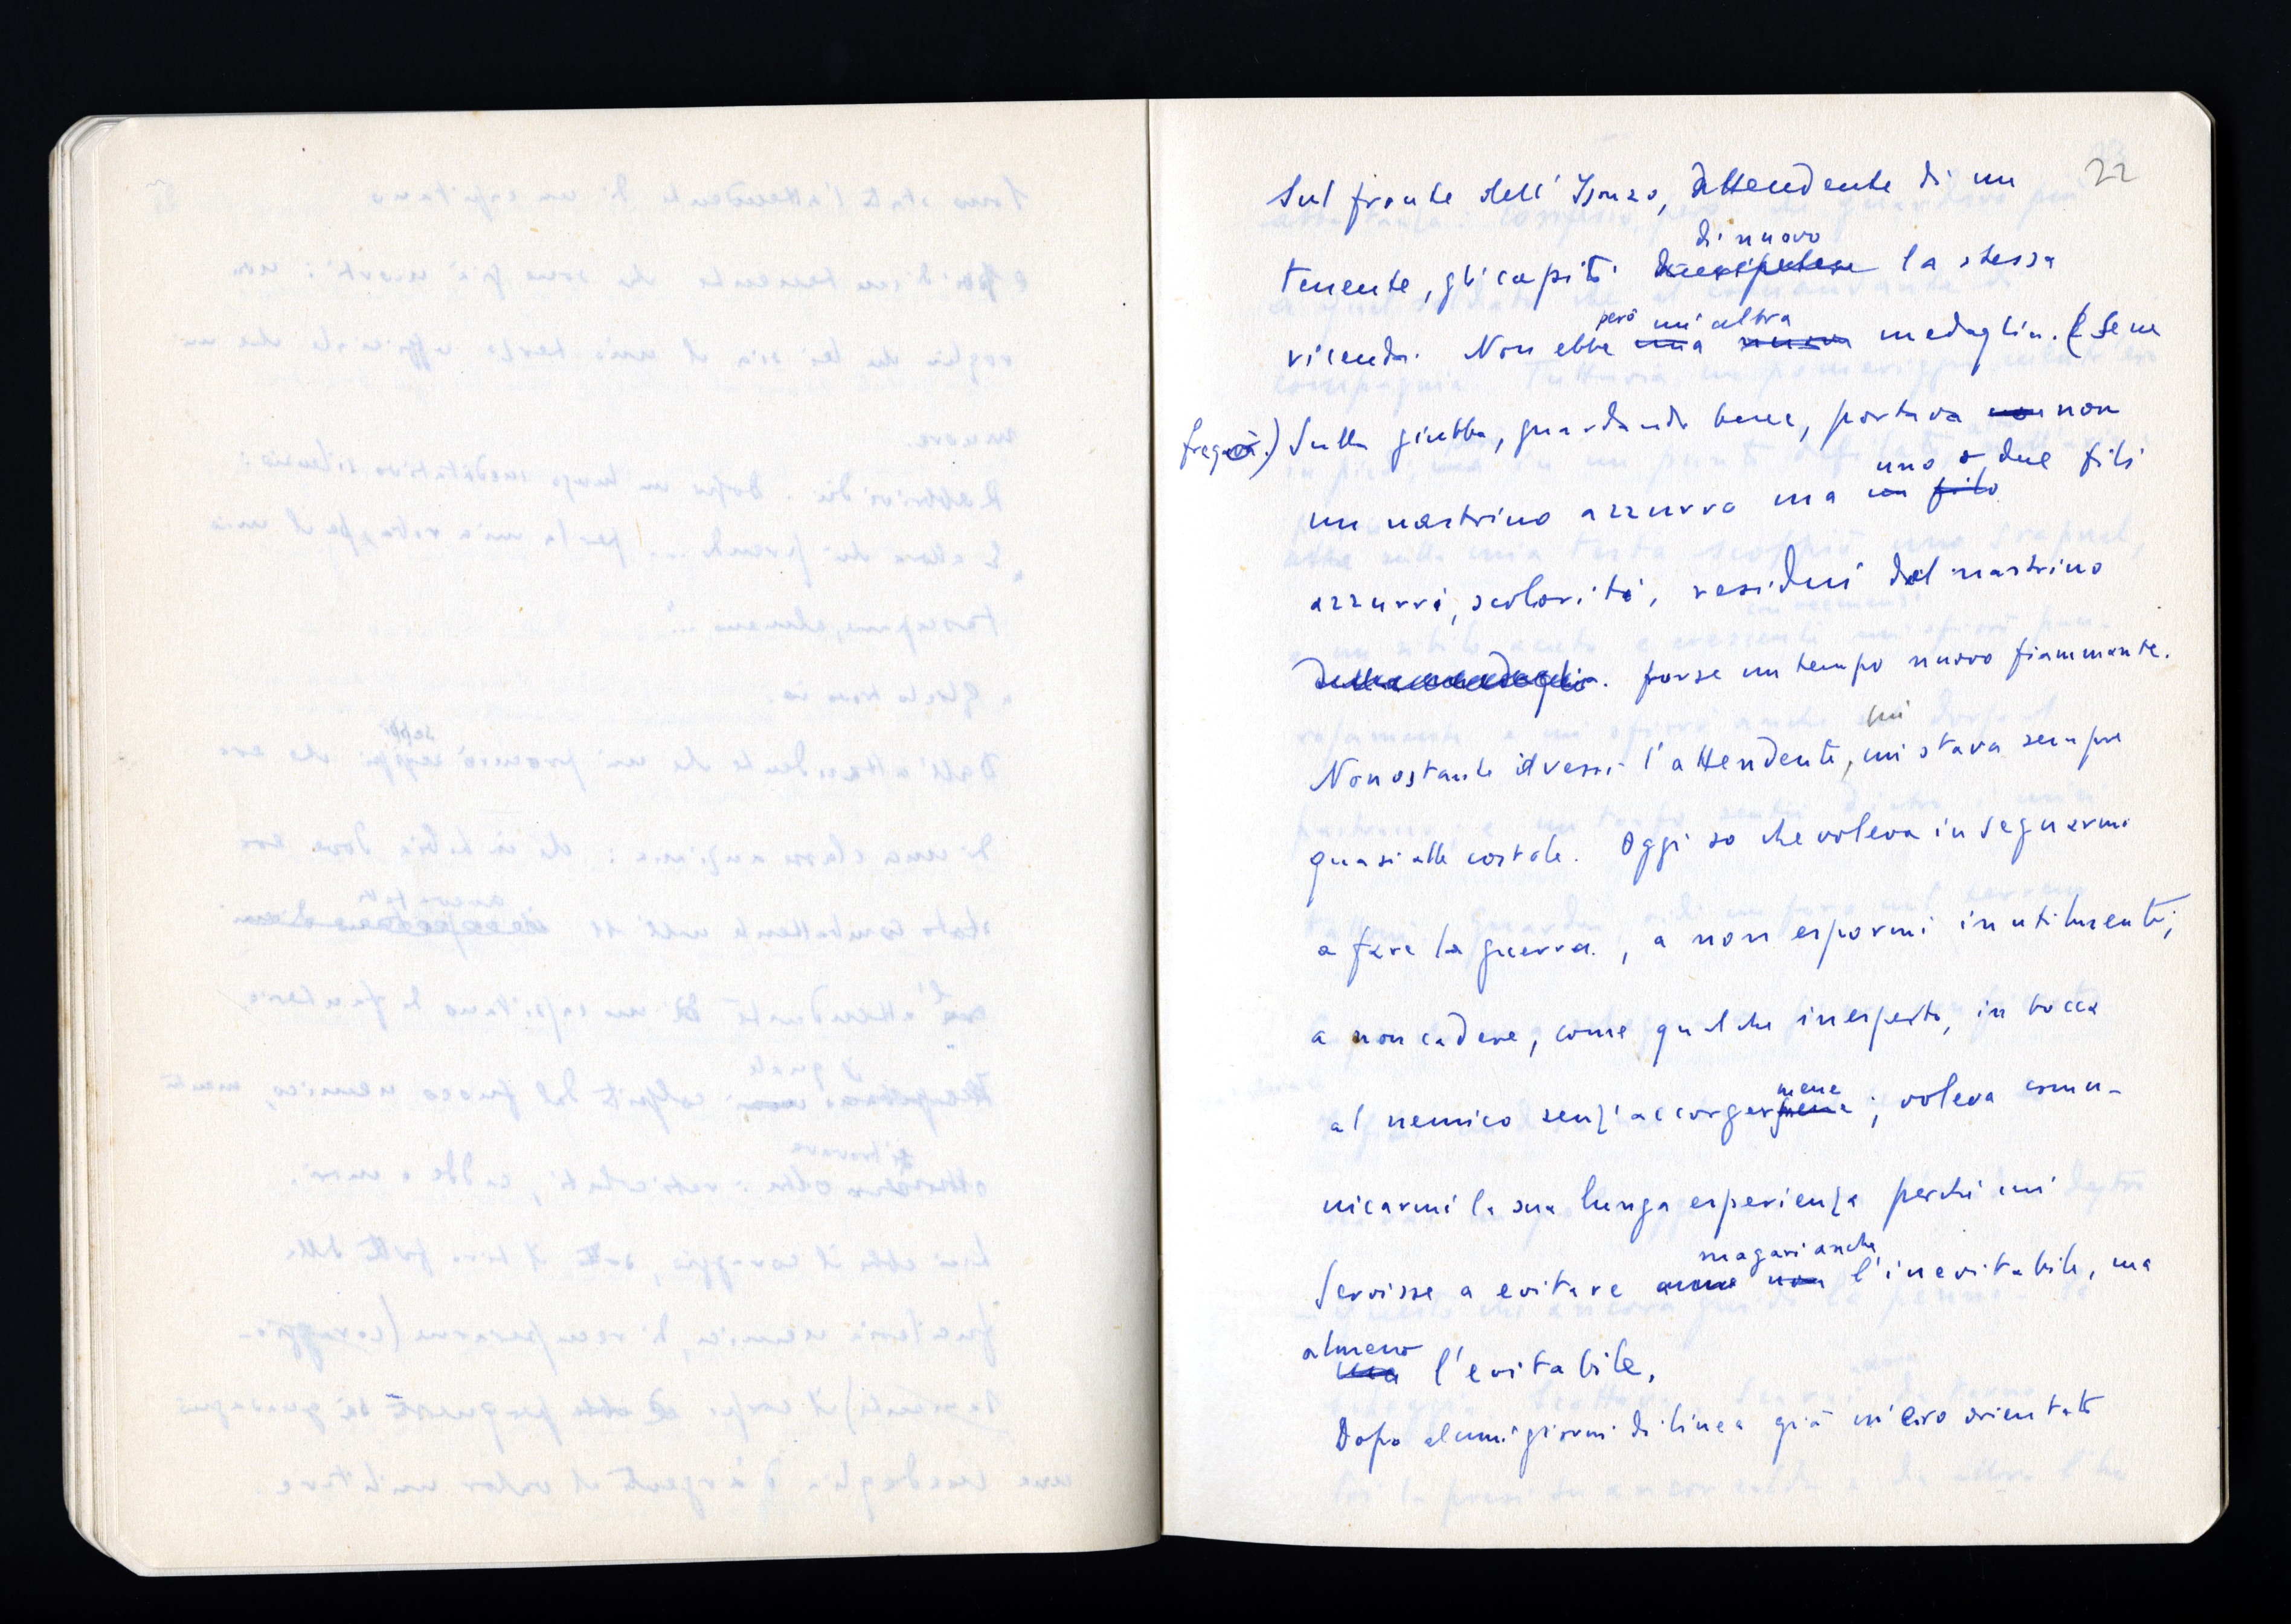 22
Sul fronte dell'Isonzo, attendente di un
di nuovo
tenente, gli capitò la stessa
però un'altra
vicenda. Non ebbe una nuova medaglia. (Se ne
fregò.) Sulla giubba, guardando bene, portava non non
uno o due fili
un nastrino azzurro ma un filo
azzurri, scoloriti, residui del nastrino
della medaglia. forse un tempo nuovo fiammante.
lui
Nonostante avessi l'attendente, mi stava sempre
quasi alle costole. Oggi so che voleva insegnarmi
a fare la guerra, a non espormi inutilmente;
a non cadere, come qualche inesperto, in bocca
mene
al nemico senz'accorger; voleva comu-
nicarmi la sua lunga esperienza perché mi
magari anche
servisse a evitare non l'inevitabile, ma
almeno
ma l'evitabile.
Dopo alcuni giorni di linea già m'ero orientato